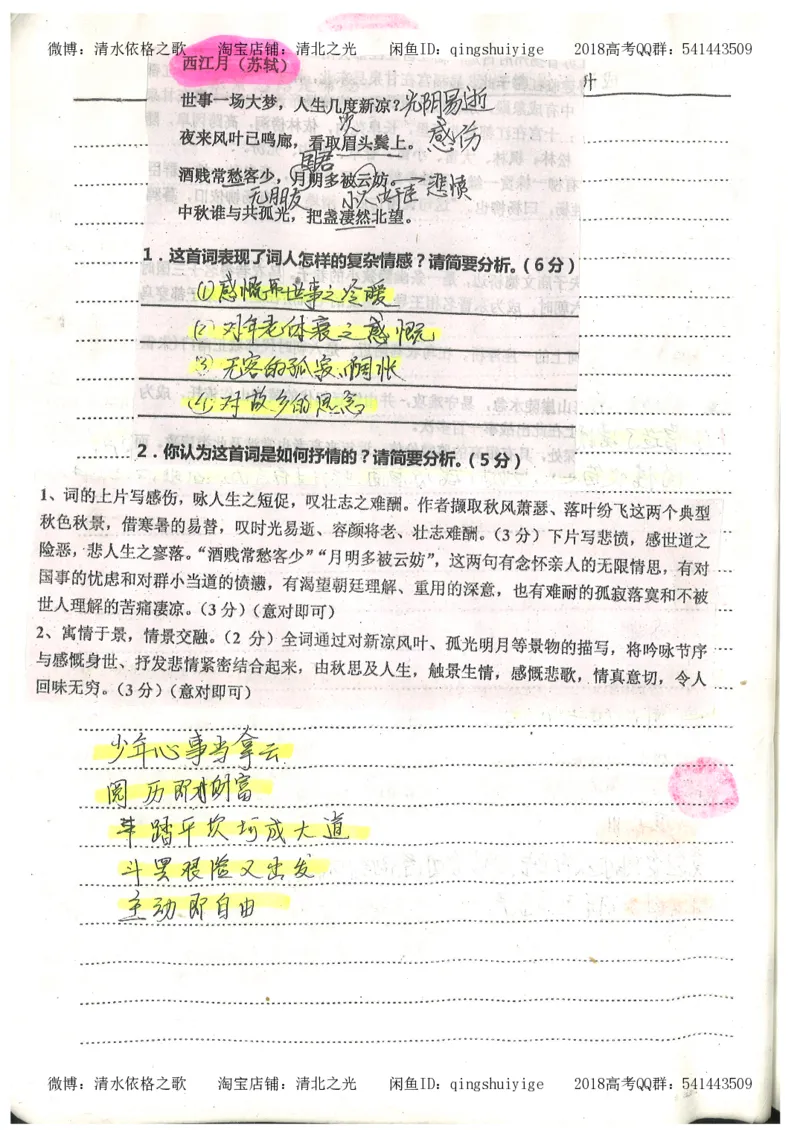 微博：清水依格之歌 淘宝店铺：清北之光 闲鱼ID：qingshuiyige 2018高考QQ群：541443509
西江月（苏轼）
升
世事一场大梦，人生几度新凉？光阴易逝
夜来风叶已鸣廊，看取眉头鬓上。感伤
国君
酒贱常愁客少，月明多被云妨。→悲愤
无朋友 小人当道
中秋谁与共孤光，把盏凄然北望。
1．这首词表现了词人怎样的复杂情感？请简要分析。（6分）
(1)感慨于世事之冷暖
(2)对年老体衰之感慨
(3)无客的孤寂、惆怅
(4)对故乡的思念
2．你认为这首词是如何抒情的？请简要分析。（5分）
1、词的上片写感伤，咏人生之短促，叹壮志之难酬。作者撷取秋风萧瑟、落叶纷飞这两个典型
秋色秋景，借寒暑的易替，叹时光易逝、容颜将老、壮志难酬。（3分）下片写悲愤，感世道之
险恶，悲人生之寥落。“酒贱常愁客少”“月明多被云妨”，这两句有念怀亲人的无限情思，有对
国事的忧虑和对群小当道的愤懑，有渴望朝廷理解、重用的深意，也有难耐的孤寂落寞和不被
世人理解的苦痛凄凉。（3分）（意对即可）
2、寓情于景，情景交融。（2 分）全词通过对新凉风叶、孤光明月等景物的描写，将吟咏节序
与感慨身世、抒发悲情紧密结合起来，由秋思及人生，触景生情，感慨悲歌，情真意切，令人
回味无穷。（3分）（意对即可）
少年心事当拿云
阅历即财富
踏平坎坷成大道
斗罢艰险又出发
主动即自由
微博：清水依格之歌 淘宝店铺：清北之光 闲鱼ID：qingshuiyige 2018高考QQ群：541443509